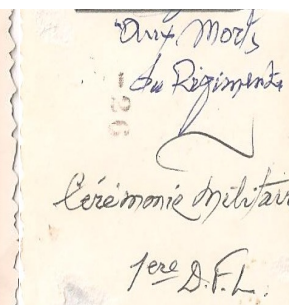 Aux Morts
du Régiment
Cérémonie Militair
1ere D.F.L.